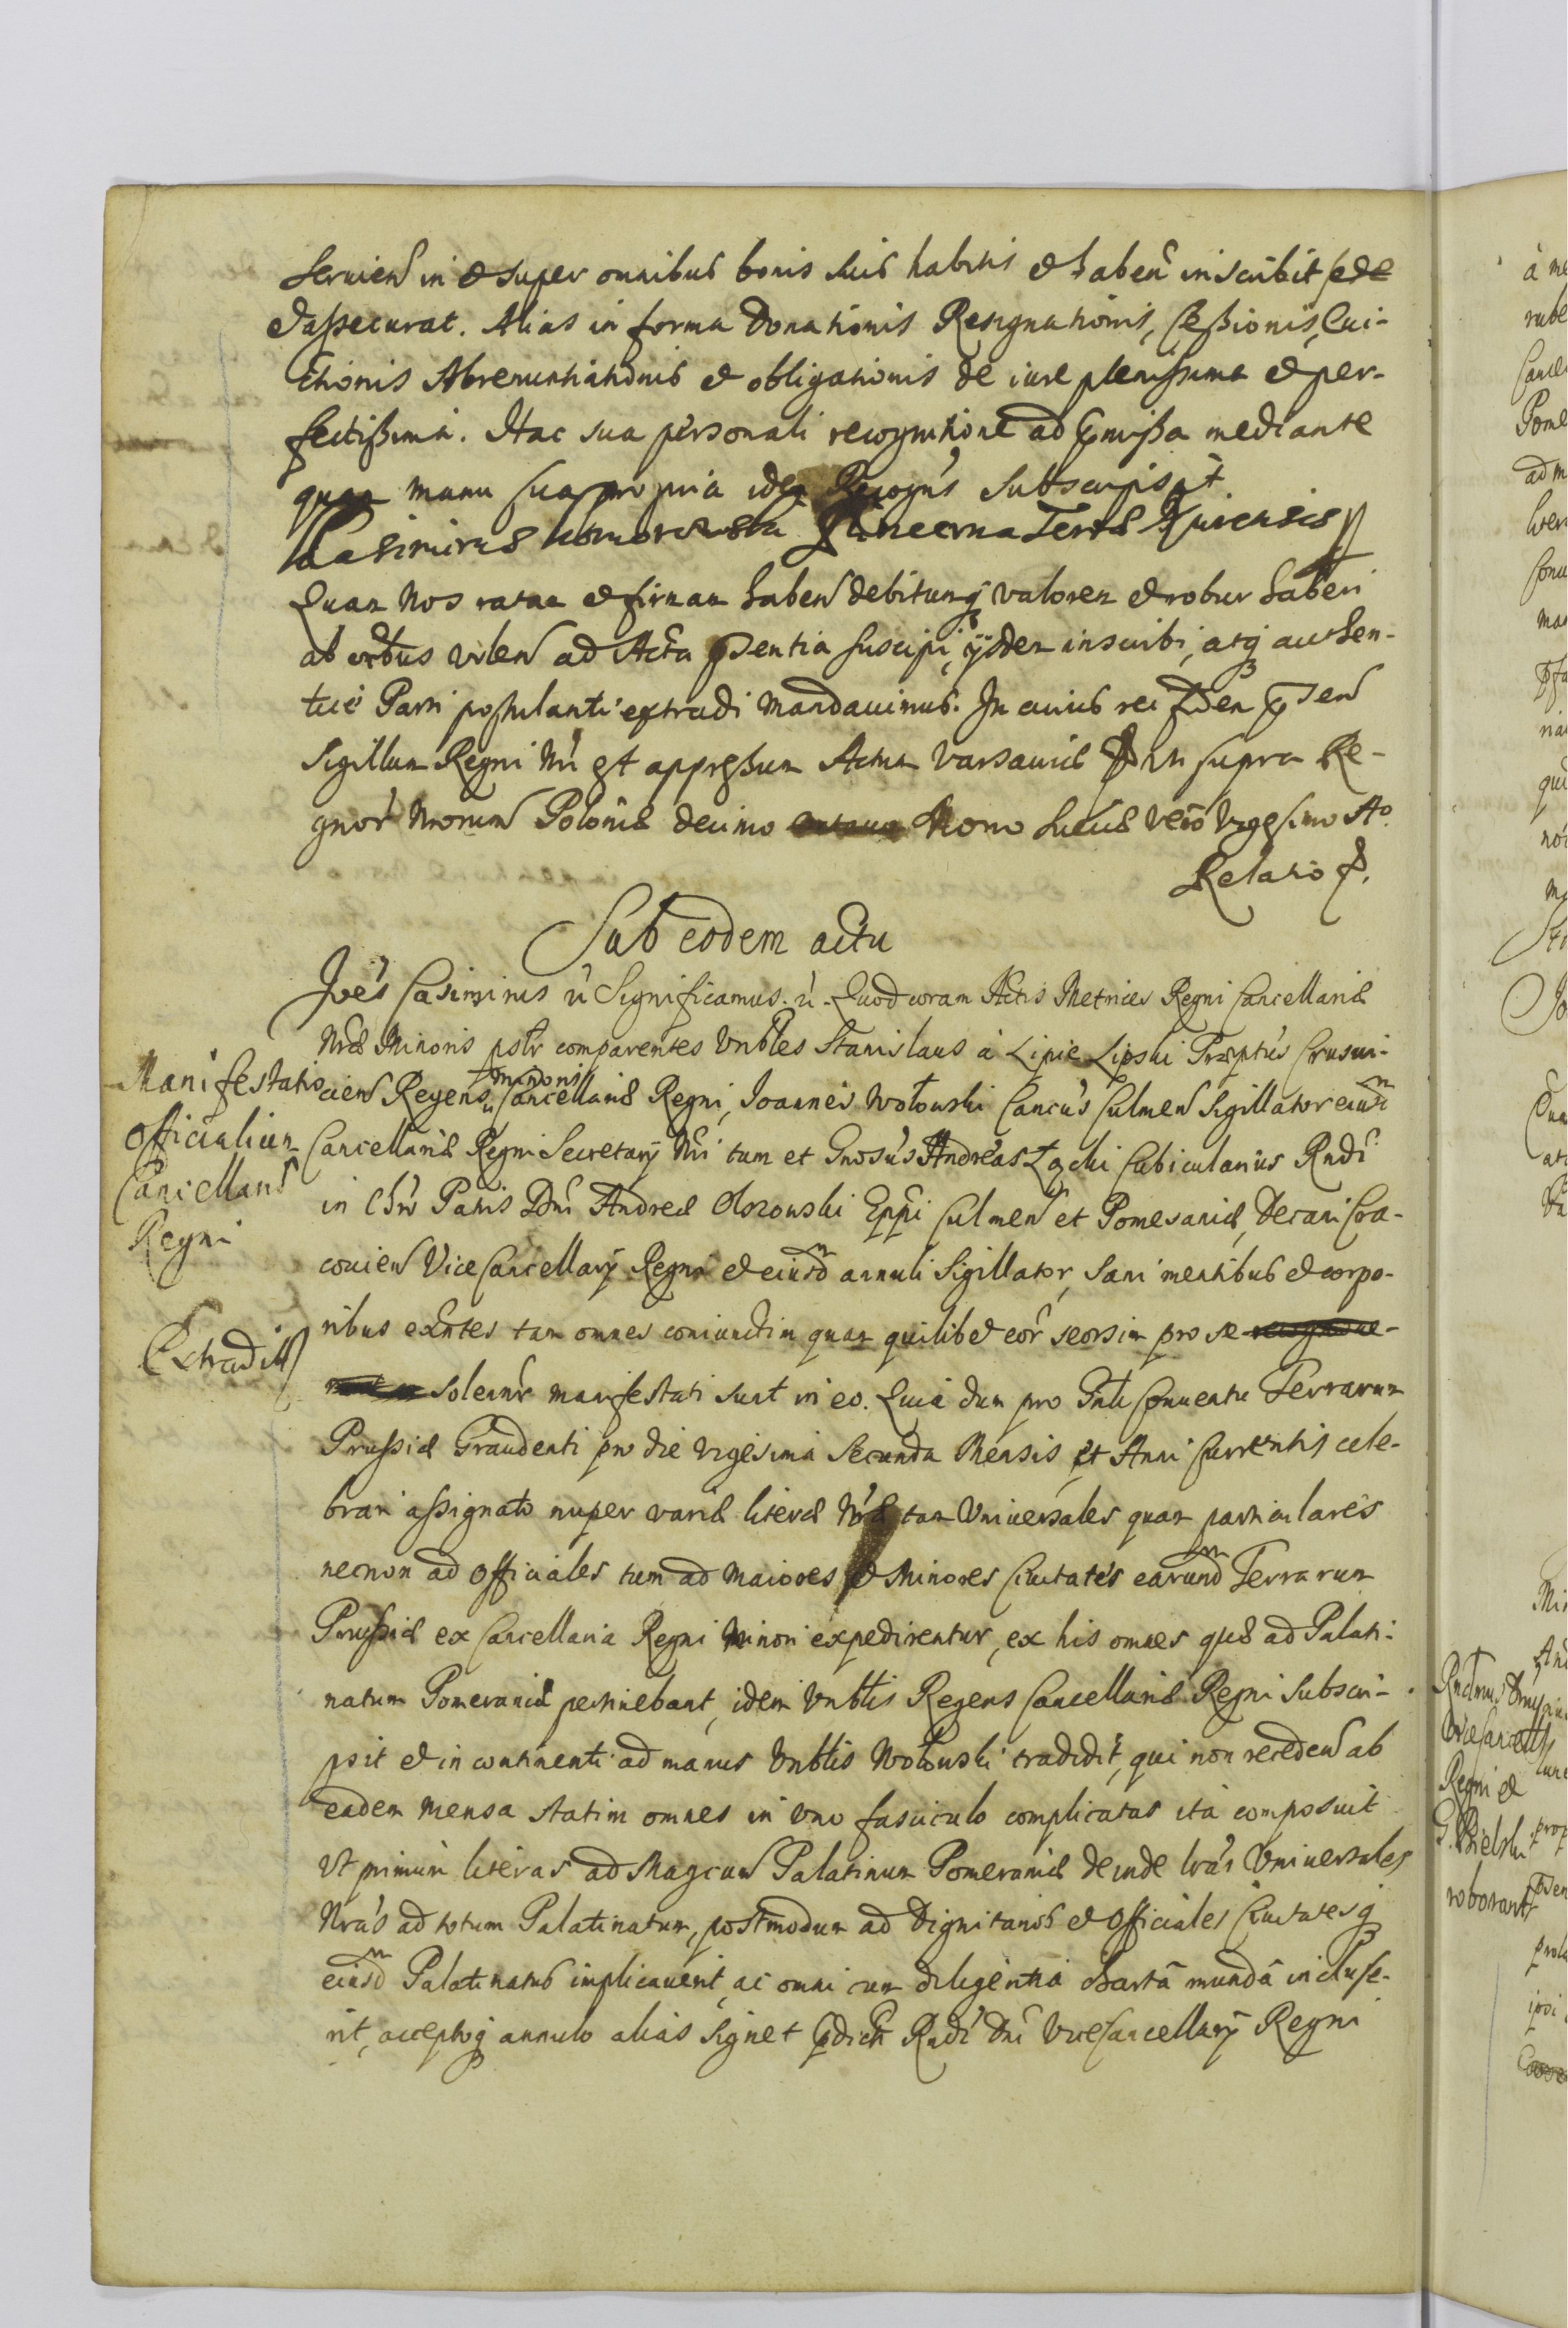 Seruien in et super omnibus bonis suis habitis et haben inscribit sede
et assecurat. Alias in forma Donationis Resignationis, Cessionis, Evi-
ctionis Abrenuntiationis et obligationis de iure plenissima et per-
fectissima. Hac sua personali recognitione ad pmissa mediante
quam manu sua propria idem Recogns subscripsit.
Casimirus Pincerna Terrae
Quam Nos ratam et firmam haben debitumq valorem et robur haberi
ab oibus volen ad Acta psentia suscipi, ijsdem inscribi, atq authen-
tice Parti postulanti extradi mandavimus. In cuius rei fidem psen
Sigillum Regni Nri est appressum Actum Varsaviae ut supra Re-
gnor Nrorum Poloniae decimo Nono Sueciae vero Vigesimo Ao
Relatio
Sub eodem actu
Joes Casimirus Significamus. Quod coram Actis Metrices Regni Cancellariae
Nrae Minoris pslr comparentes Vnbles Stanislaus a Lipie Lipski Praeptus Crusui-
Manifestatio
Officialium
Cancellariae
Regni
Extradit
cien Regens Minoris Cancellariae Regni, Joannes Wołowski Cancus Culmen Sigillator eiusd
Cancellariae Regni Secretarij Nri tum et Gnosus Andreas Łącki Cubicularius Rndi
in Chro Patris Dni Andreae Olszowski Eppi Culmen et Pomesaniae, Decani Cra-
covien ViceCancellarij Regni et eiusdm annuli Sigillator, sani mentibus et corpo-
ribus exntes tam omnes coniunctim quam quilibet eor seorsim pro se
solennr manifestati sunt in eo. Quia dum pro Gnli Conventu Terrarum
Prussiae Graudenti pro die vigesima Secunda Mensis et Anni Currentis cele-
brari assignato nuper variae literae Nrae tam Vniuersales quam particulares
necnon ad Officiales tum ad Maiores et Minores Ciuitates earundm Terrarum
Prussiae ex Cancellaria Regni Minori expedirentur, ex his omnes quae ad Palati-
natum Pomeraniae pertinebant, idem Vnblis Regens Cancellariae Regni Subscri-
psit et in continenti ad manus Vnblis Wołowski tradidit, qui non receden ab
eadem mensa statim omnes in vno fasciculo complicatas ita composuit
Vt primum literas ad Magcum Palatinum Pomeraniae deinde lras Vniuersales
Nras ad totum Palatinatum, postmodum ad Dignitarios et Officiales Ciuitatesq
eiusdm Palatinatus implicauerit, ac omni cum diligentia charta munda incluse-
rit, acceptoq annulo alias Signet pdicti Rndi Dni ViceCancellarij Regni